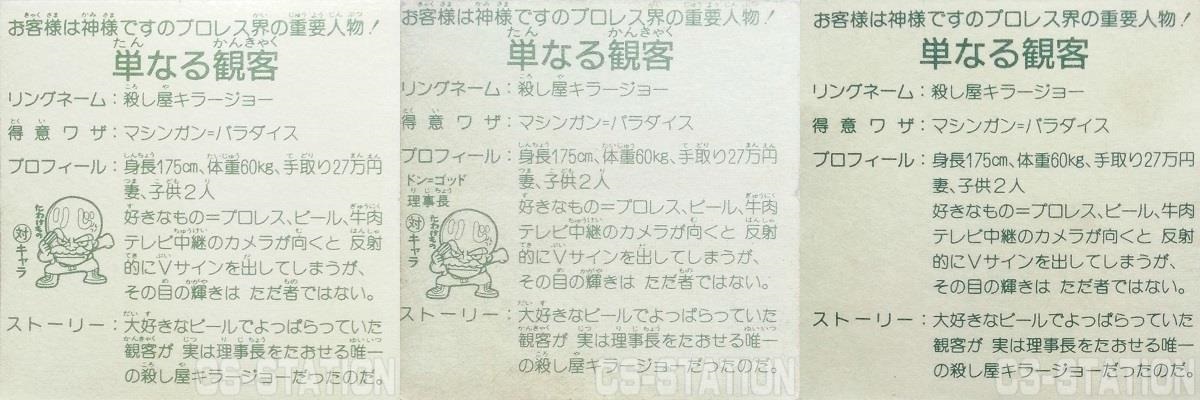 お客様は神様ですのプロレス界の重要人物!
単なる観客
リングネーム:殺し屋キラージョー
得意ワザ:マシンガン=パラダイス
プロフィール:身長175cm、体重60kg、手取り27万円
妻、子供2人
好きなもの=プロレス、ビール、牛肉
テレビ中継のカメラが向くと 反射
的にVサインを出してしまうが、
その目の輝きは ただ者ではない。
たわけもの
りじ
対キャラ
ストーリー:大好きなビールでよっぱらっていた
観客が 実は理事長をたおせる唯一
の殺し屋キラージョーだったのだ。
CS-STATION
お客様は神様ですのプロレス界の重要人物!
単なる観客
リングネーム:殺し屋キラージョー
得意ワザ:マシンガン=パラダイス
プロフィール:身長175cm、体重60kg、手取り27万円
妻、子供2人
好きなもの=プロレス、ビール、牛肉
テレビ中継のカメラが向くと 反射
的にVサインを出してしまうが、
その目の輝きは ただ者ではない。
ドン=ゴッド
理事長
たわけもの
りじ
対キャラ
ストーリー:大好きなビールでよっぱらっていた
観客が 実は理事長をたおせる唯一
の殺し屋キラージョーだったのだ。
CS-STATION
お客様は神様ですのプロレス界の重要人物!
単なる観客
リングネーム:殺し屋キラージョー
得意ワザ:マシンガン=パラダイス
プロフィール:身長175cm、体重60kg、手取り27万円
妻、子供2人
好きなもの=プロレス、ビール、牛肉
テレビ中継のカメラが向くと 反射
的にVサインを出してしまうが、
その目の輝きは ただ者ではない。
ストーリー:大好きなビールでよっぱらっていた
観客が 実は理事長をたおせる唯一
の殺し屋キラージョーだったのだ。
CS-STATION